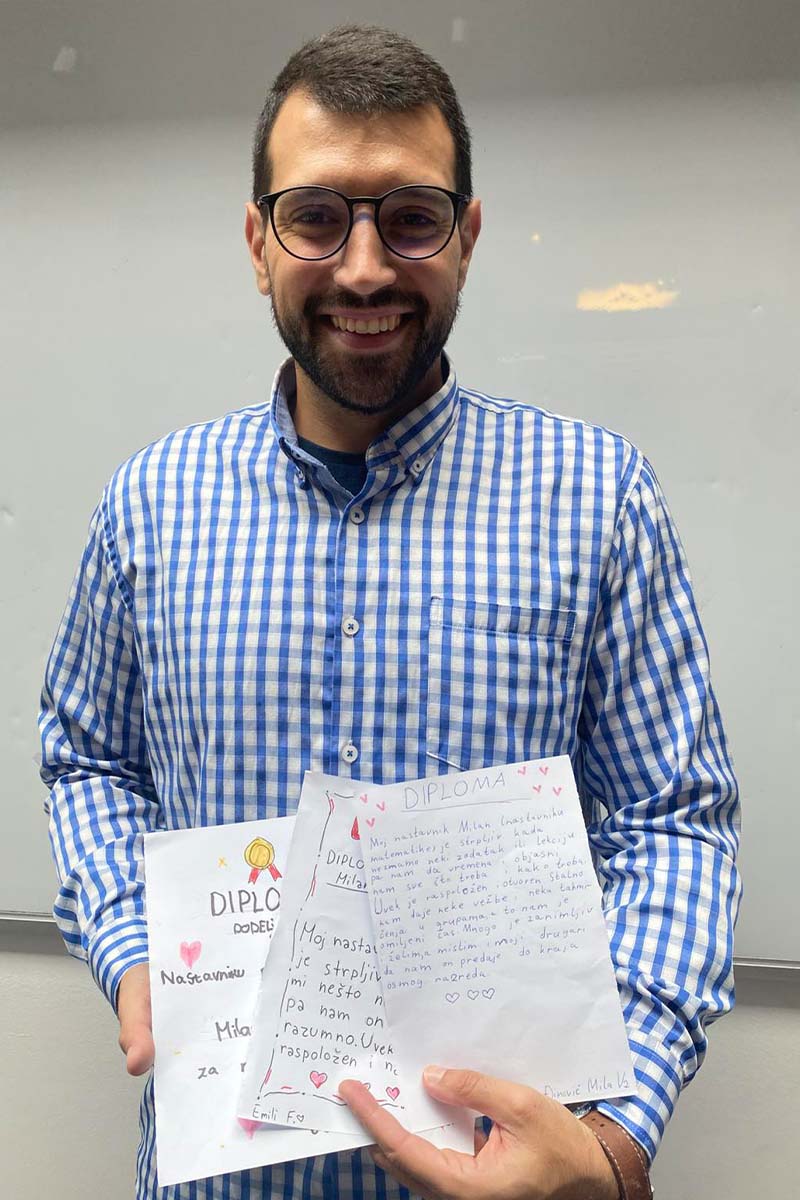 DIPLO
DODELJ
Nastavniku
Mila
za
DIPLO
Milan
Moj nasta
je strpljiv
mi nešto n
pa nam on
razumno. Uvek
raspoložen i n
Emili F.
DIPLOMA
Moj nastavnik Milan (nastavniku
matematike) je strpljiv kada
neznamo neki zadatak ili lekciju
pa nam da vremena i objasni
nam sve što treba i kako treba.
Uvek je raspoložen i otvoren. Stalno
nam daje neke vežbe i neka takmi-
čenja u grupama, a to nam je
omiljeni čas. Mnogo je zanimljiv
i želim ja mislim i moji drugari
da nam on predaje do kraja
osmog razreda.
Đinović Mila V2